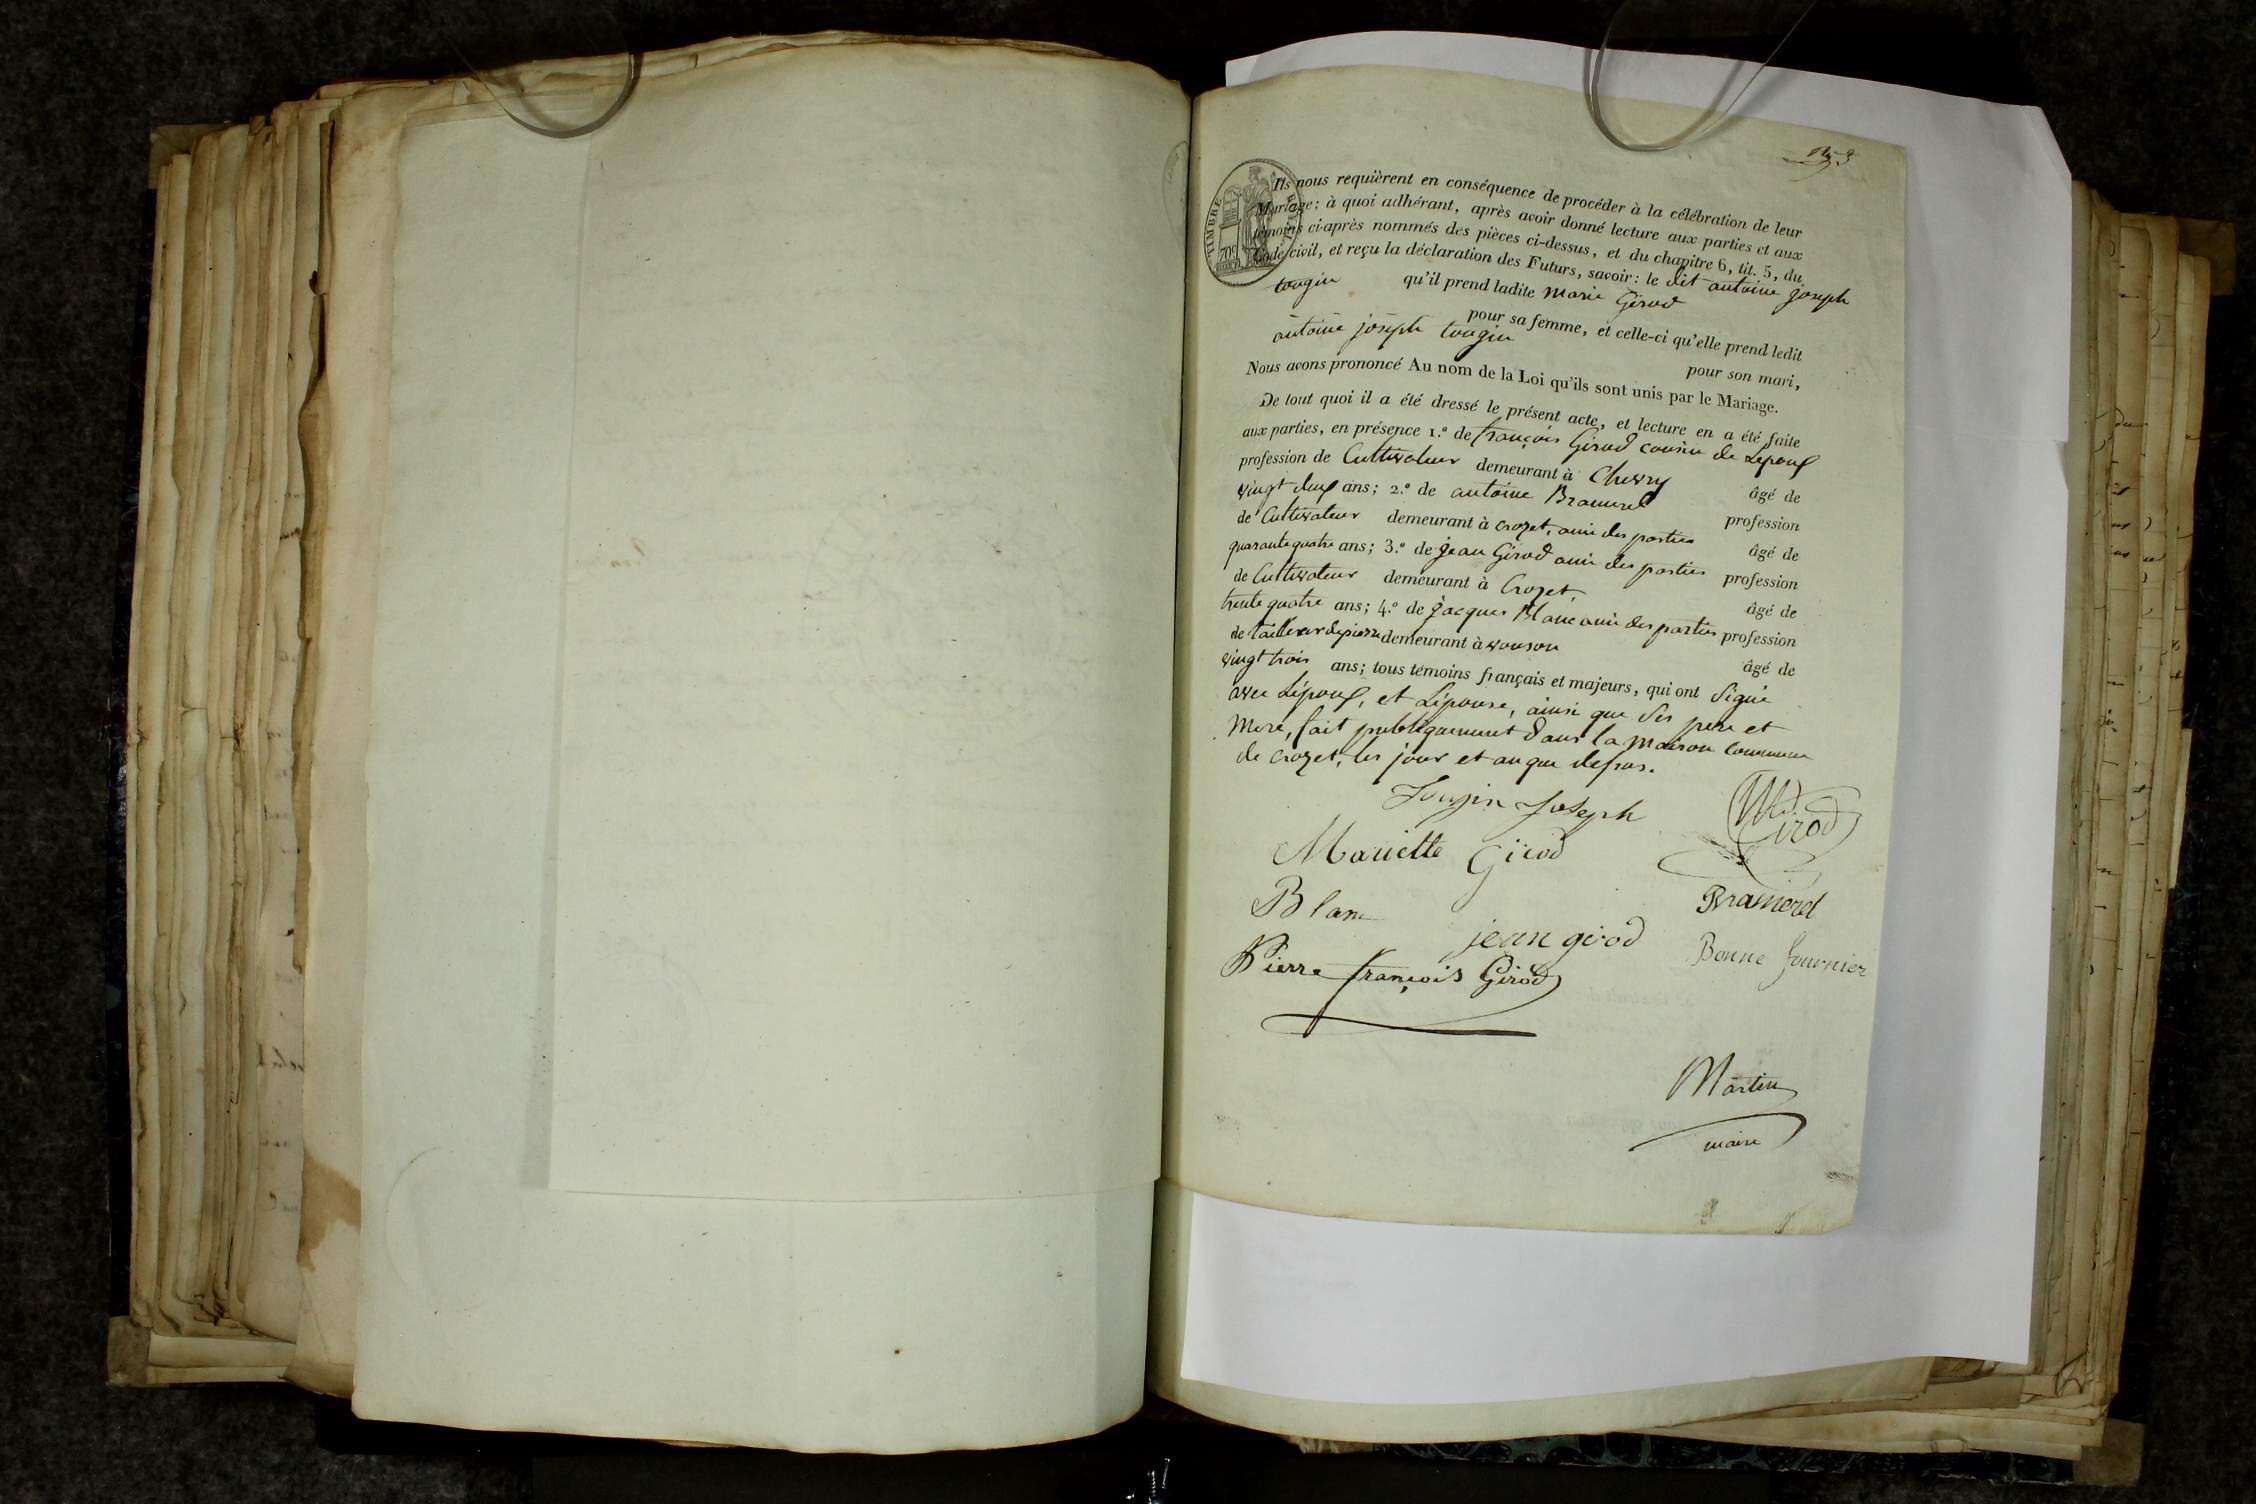 N.º 3
TIMBRE
70c
Ils nous requièrent en conséquence de procéder à la célébration de leur
Mariage: à quoi adhérant, après avoir donné lecture aux parties et aux
témoins ci-après nommés des pièces ci-dessus, et du chapitre 6, tit. 5, du
Code civil, et reçu la déclaration des Futurs, savoir: le dit antoine joseph
tougin qu'il prend ladite marie Girod
pour sa femme, et celle-ci qu'elle prend ledit
antoine joseph tougin pour son mari,
Nous avons prononcé Au nom de la Loi qu'ils sont unis par le Mariage.
De tout quoi il a été dressé le présent acte, et lecture en a été faite
aux parties, en présence 1.º de françois Girod cousin de Lepoux
profession de Cultivateur demeurant à Chevry âgé de
vingt deux ans; 2.º de antoine Brameret profession
de Cultivateur demeurant à crozet, ami des parties âgé de
quarante quatre ans; 3.º de jean Girod ami des parties profession
de Cultivateur demeurant à Crozet, âgé de
trente quatre ans; 4.º de jacques Blanc ami des parties profession
de tailleur de pierre demeurant à vouson âgé de
vingt trois ans; tous témoins français et majeurs, qui ont signé
avec Lépoux, et Lépouse, ainsi que ses pere et
mere, fait publiquement dans la maison commune
de crozet, les jour et an que dessus.
Tougin Joseph
Girod
Mariette Girod
Blanc
Brameret
jean girod
Bonne fournier
Pierre françois Girod
Martin
maire